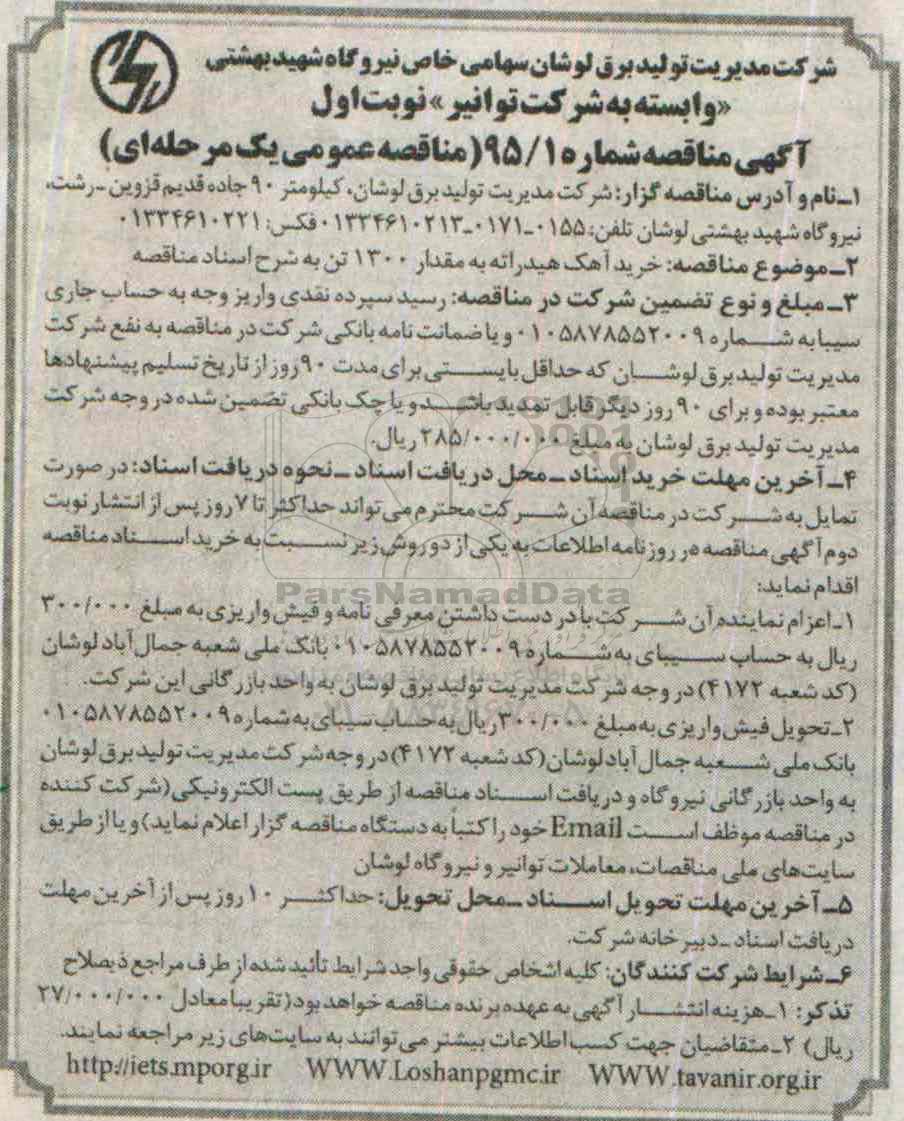 شرکت مدیریت تولید برق لوشان سهامی خاص نیروگاه شهید بهشتی
«وابسته به شرکت توانیر» نوبت اول
آگهی مناقصه شماره ۹۵/۱ (مناقصه عمومی یک مرحله‌ای)
۱ـ نام و آدرس مناقصه گزار: شرکت مدیریت تولید برق لوشان، کیلومتر ۹۰ جاده قدیم قزوین ـ رشت،
نیروگاه شهید بهشتی لوشان تلفن: ۰۱۵۵-۰۱۷۱-۰۱۳۳۴۶۱۰۲۱۳ فکس: ۰۱۳۳۴۶۱۰۲۲۱
۲ـ موضوع مناقصه: خرید آهک هیدراته به مقدار ۱۳۰۰ تن به شرح اسناد مناقصه
۳ـ مبلغ و نوع تضمین شرکت در مناقصه: رسید سپرده نقدی واریز وجه به حساب جاری
سیبا به شماره ۰۱۰۵۸۷۸۵۵۲۰۰۹ و یا ضمانت نامه بانکی شرکت در مناقصه به نفع شرکت
مدیریت تولید برق لوشان که حداقل بایستی برای مدت ۹۰ روز از تاریخ تسلیم پیشنهادها
معتبر بوده و برای ۹۰ روز دیگر قابل تمدید باشد و یا چک بانکی تضمین شده در وجه شرکت
مدیریت تولید برق لوشان به مبلغ ۲۸۵/۰۰۰/۰۰۰ ریال.
۴ـ آخرین مهلت خرید اسناد ـ محل دریافت اسناد ـ نحوه دریافت اسناد: در صورت
تمایل به شرکت در مناقصه آن شرکت محترم می‌تواند حداکثر تا ۷ روز پس از انتشار نوبت
دوم آگهی مناقصه در روزنامه اطلاعات به یکی از دو روش زیر نسبت به خرید اسناد مناقصه
اقدام نماید:
ParsNamadData
۱ـ اعزام نماینده آن شرکت با در دست داشتن معرفی نامه و فیش واریزی به مبلغ ۳۰۰/۰۰۰
ریال به حساب سیبای به شماره ۰۱۰۵۸۷۸۵۵۲۰۰۹ بانک ملی شعبه جمال آباد لوشان
(کد شعبه ۴۱۷۲) در وجه شرکت مدیریت تولید برق لوشان به واحد بازرگانی این شرکت.
۲ـ تحویل فیش واریزی به مبلغ ۳۰۰/۰۰۰ ریال به حساب سیبای به شماره ۰۱۰۵۸۷۸۵۵۲۰۰۹
بانک ملی شعبه جمال آباد لوشان (کد شعبه ۴۱۷۲) در وجه شرکت مدیریت تولید برق لوشان
به واحد بازرگانی نیروگاه و دریافت اسناد مناقصه از طریق پست الکترونیکی (شرکت کننده
در مناقصه موظف است Email خود را کتباً به دستگاه مناقصه گزار اعلام نماید) و یا از طریق
سایت‌های ملی مناقصات، معاملات توانیر و نیروگاه لوشان
۵ـ آخرین مهلت تحویل اسناد ـ محل تحویل: حداکثر ۱۰ روز پس از آخرین مهلت
دریافت اسناد ـ دبیرخانه شرکت.
۶ـ شرایط شرکت کنندگان: کلیه اشخاص حقوقی واجد شرایط تائید شده از طرف مراجع ذیصلاح
تذکر: ۱ـ هزینه انتشار آگهی به عهده برنده مناقصه خواهد بود (تقریبا معادل ۲۷/۰۰۰/۰۰۰
ریال) ۲ـ متقاضیان جهت کسب اطلاعات بیشتر می‌توانند به سایت‌های زیر مراجعه نمایند.
http://iets.mporg.ir WWW.Loshanpgmc.ir WWW.tavanir.org.ir